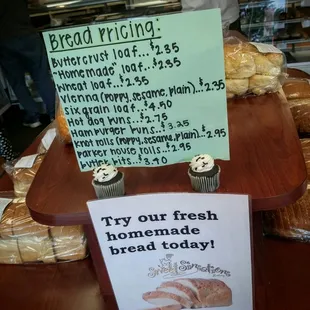 Bread Pricing:
Buttercrust loaf...$2.35
"Homemade" loaf...$2.35
Wheat loaf...$2.55
Vienna (poppy, sesame, plain)..$2.35
Six grain loaf...$4.50
Hot dog buns...$2.75
Hamburger buns...$3.25
Knot rolls (poppy, sesame, plain)..$2.95
Parker house rolls...$2.95
Butter bits..$3.70
Try our fresh
homemade
bread today!